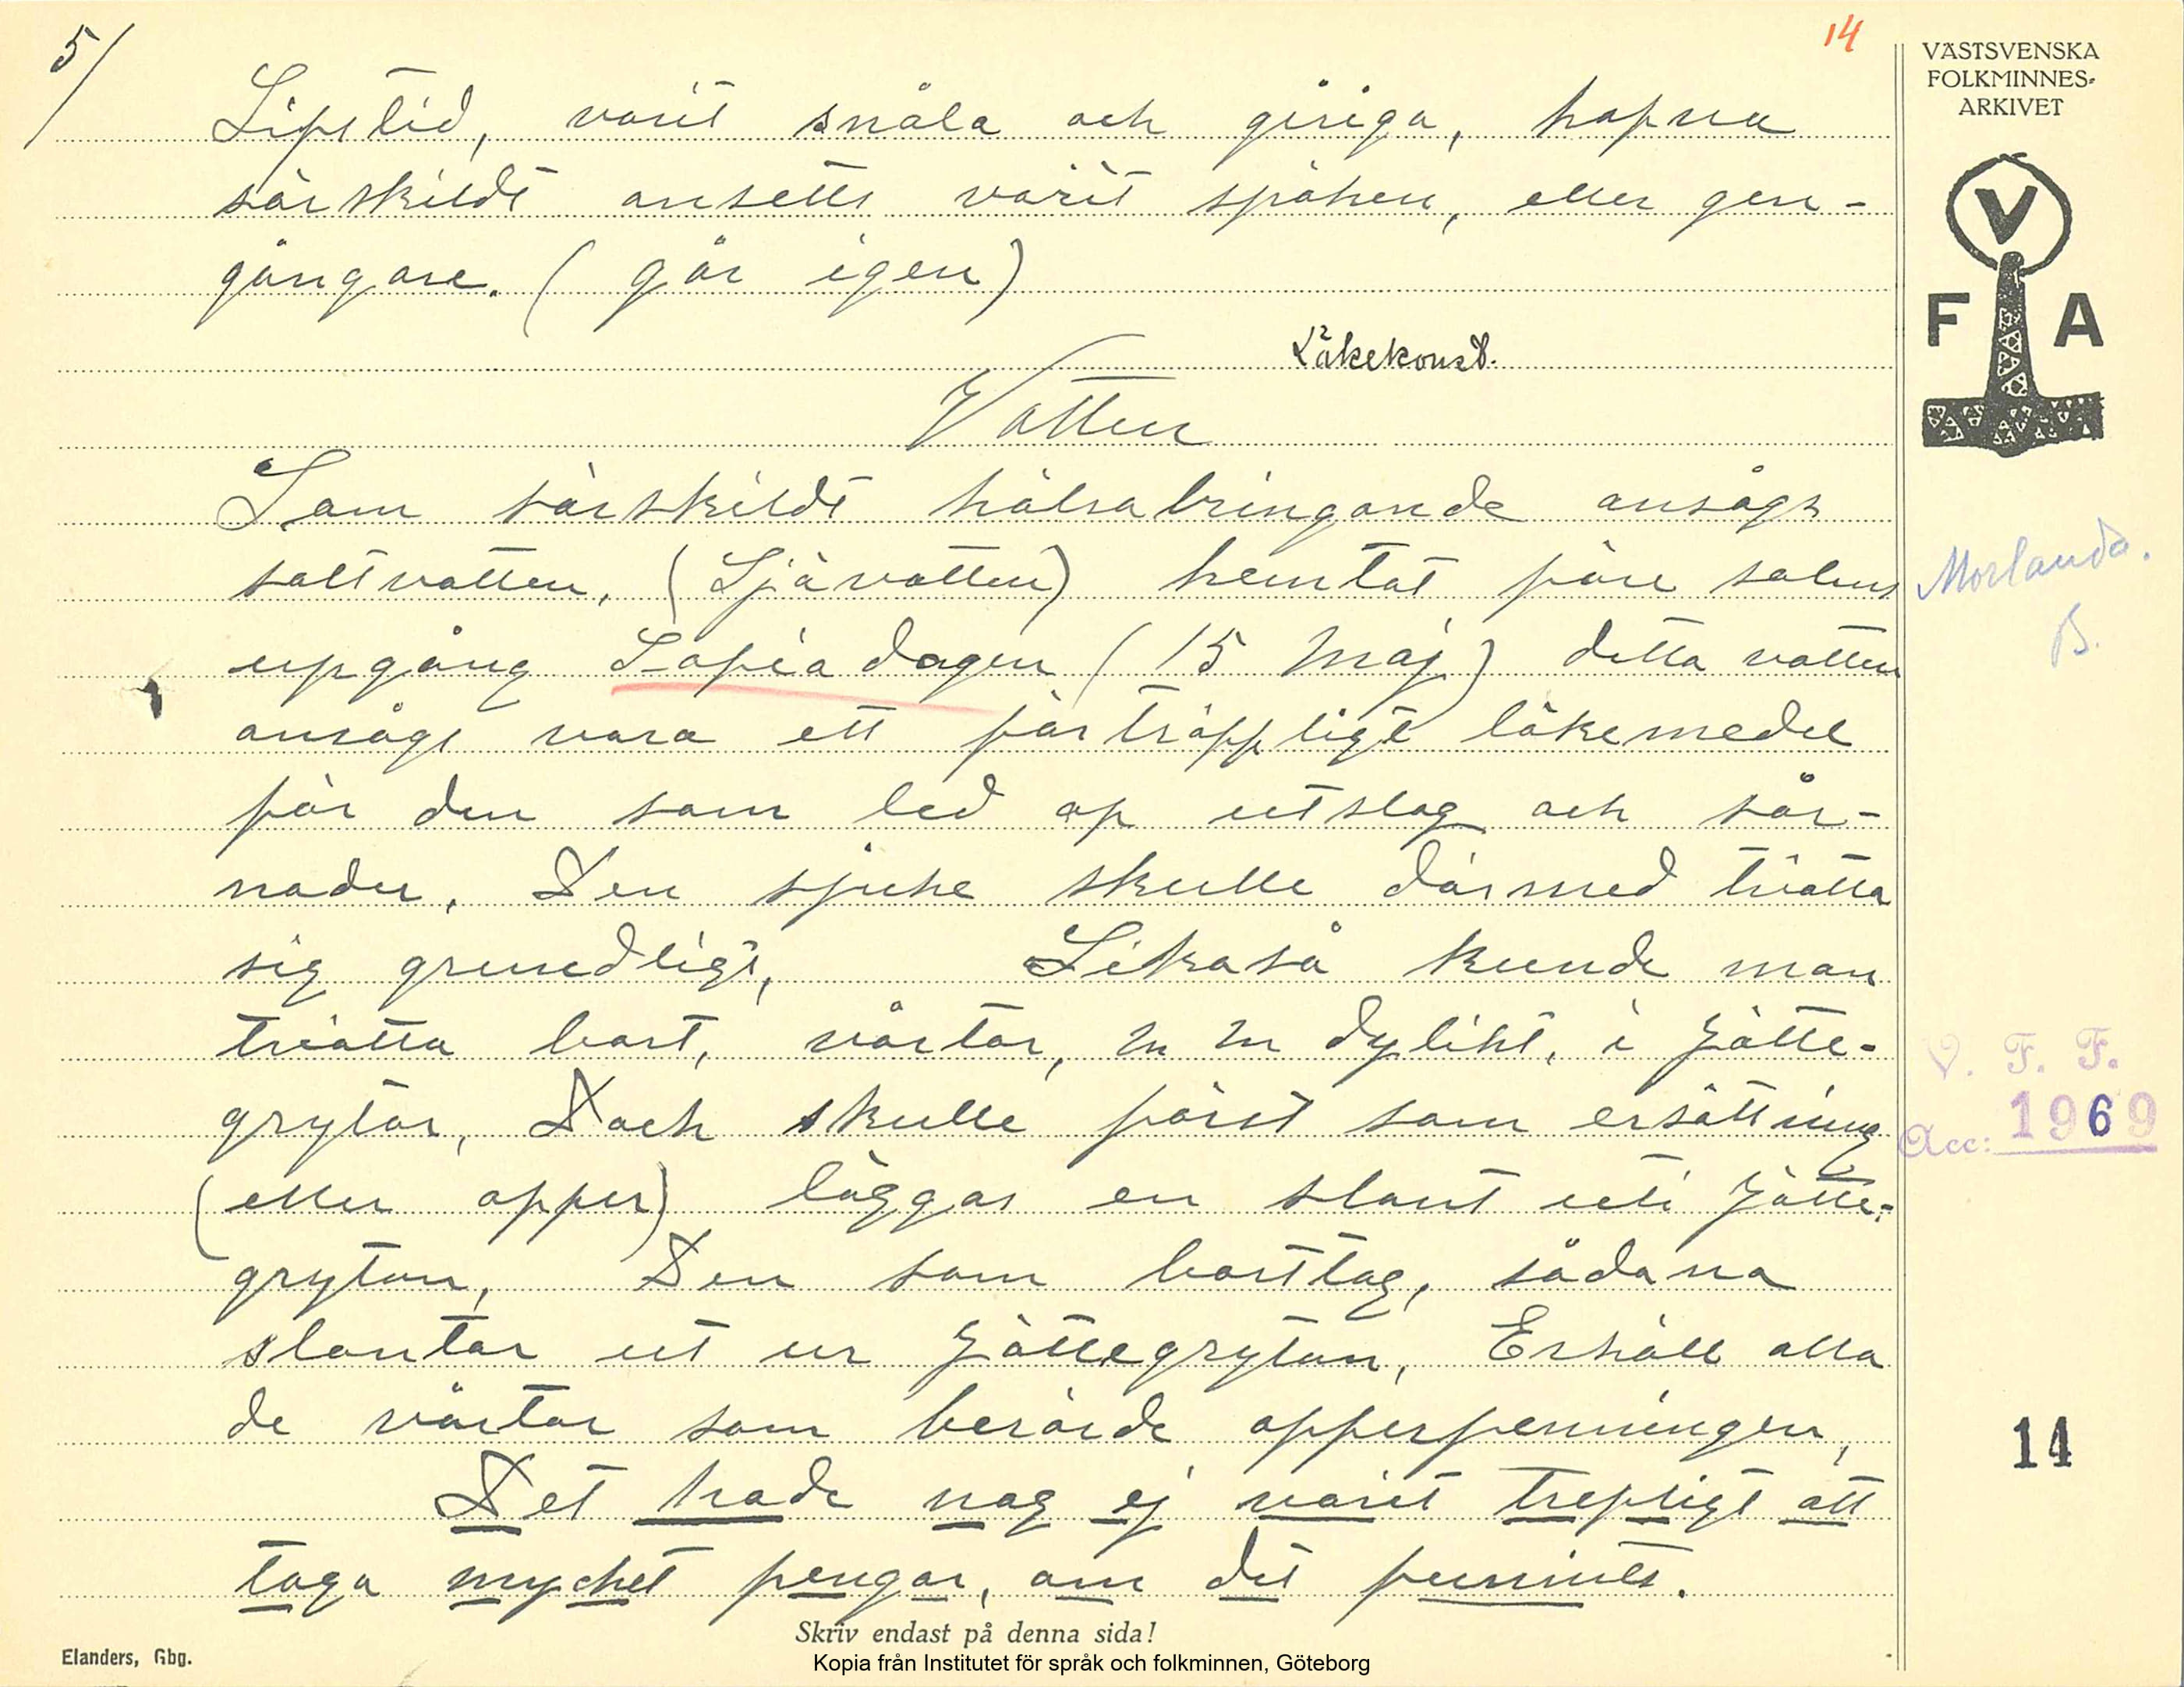 5/
14
Lifstid, varit snåla och giriga, hafva
särskildt ansetts varit spöken, eller gen-
gångare. (går igen)
Läkekonst.
Vatten
Som särskildt hälsabringande ansågs
saltvatten, (Sjövatten) hemtat före solens
upgång Sofia dagen (15 Maj) detta vatten
ansågs vara ett förträffligt läkemedel
för den som led af utslag och sår-
nader. Den sjuke skulle därmed tvätta
sig grundligt, Likaså kunde man
tvätta bort, vårtor, m m dylikt, i Jätte-
grytor, Doch skulle först som ersättning
(eller offer) läggas en slant uti Jätte-
grytan, Den som borttog, sådana
slantar ut ur Jättegrytan, Erhöll alla
de vårtor som berörde offerpenningen,
Det hade nog ej varit trefligt att
taga mychet pengar, om det funnits.
Skriv endast på denna sida!
Elanders, Gbg.
Kopia från Institutet för språk och folkminnen, Göteborg
VÄSTSVENSKA
FOLKMINNES-
ARKIVET
V
F A
Morlanda.
B.
V. F. F.
Acc: 1969
14